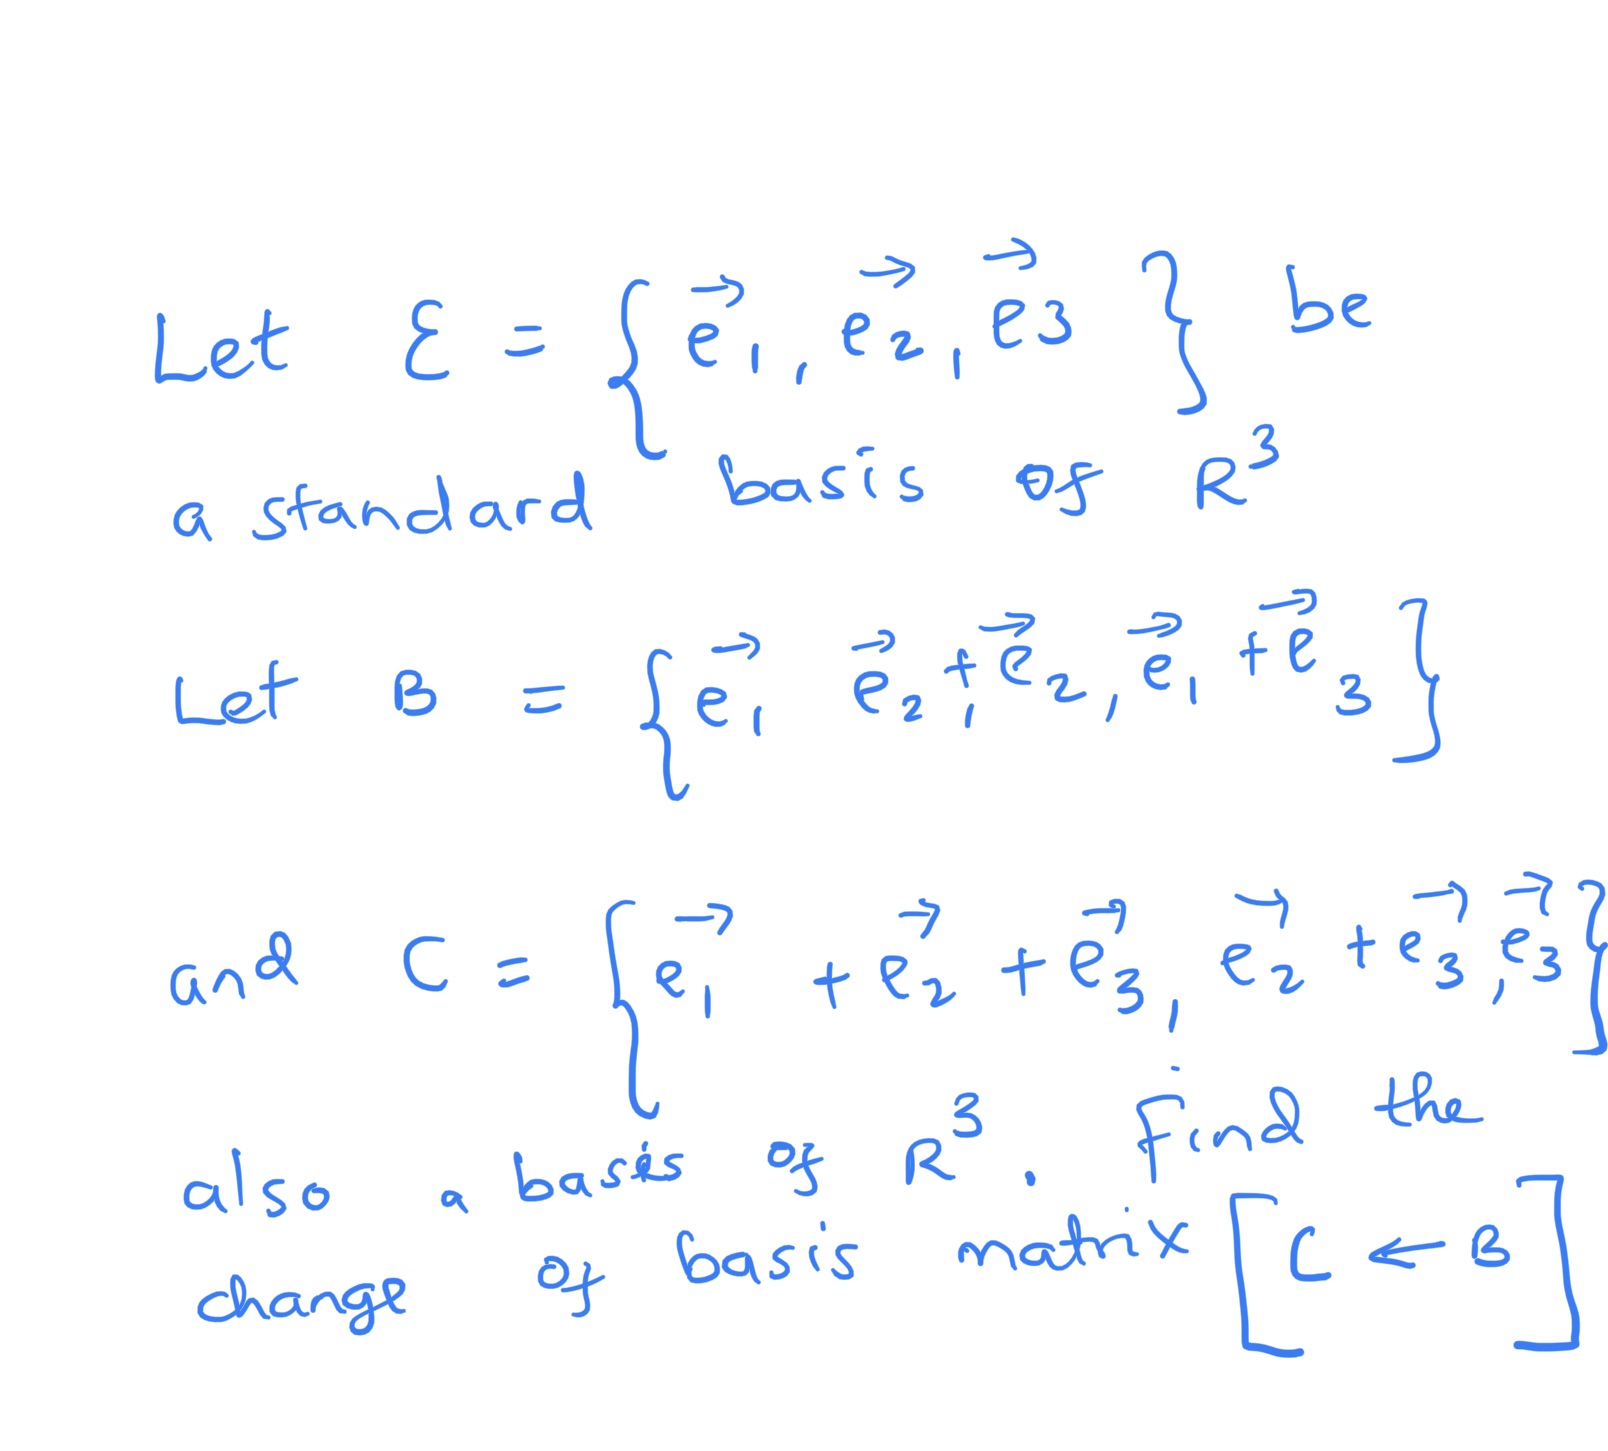 Let ℰ = { e⃗₁, e⃗₂, e⃗3 } be
a standard basis of R³
Let B = { e⃗₁ e⃗₂,+e⃗₂, e⃗₁ +e⃗₃ }
and C = { e⃗₁ + e⃗₂ + e⃗₃, e⃗₂ + e⃗₃, e⃗₃ }
also a basis of R³. Find the
change of basis matrix [ C ← B ]